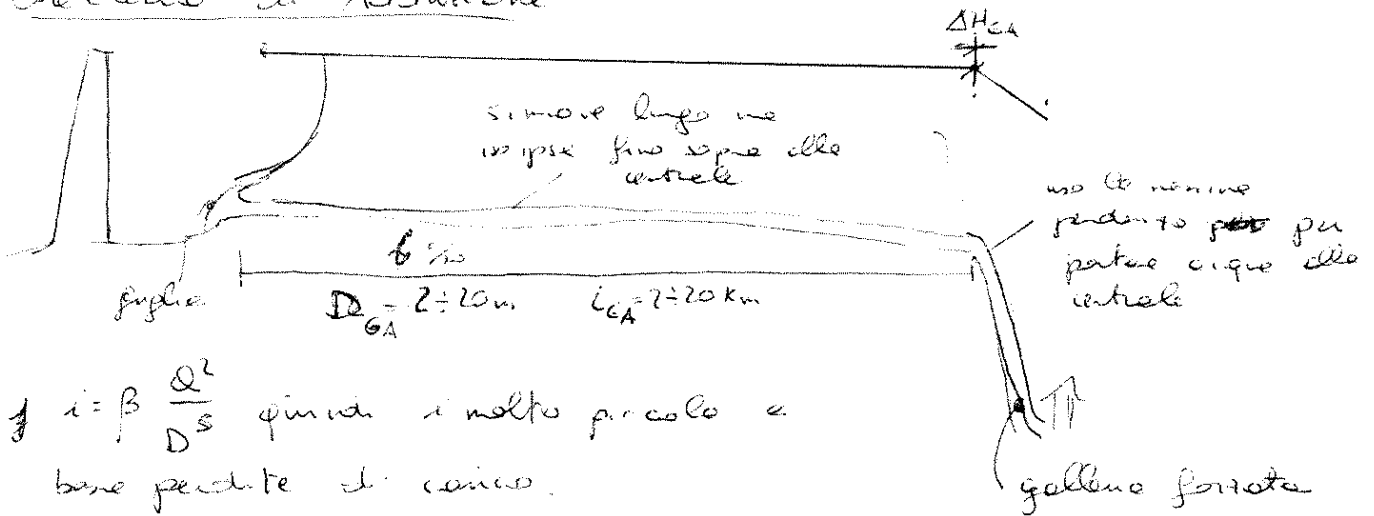 ΔH_GA
si muove lungo una
isoipse fino sopra alla
centrale
uso la massima
pendenza per
portare acqua alla
centrale
6 ‰
griglia
D_GA = 2÷20 m
L_GA = 2÷20 km
i = β Q²/D⁵ quindi i molto piccolo e
basse perdite di carico.
galleria forzata